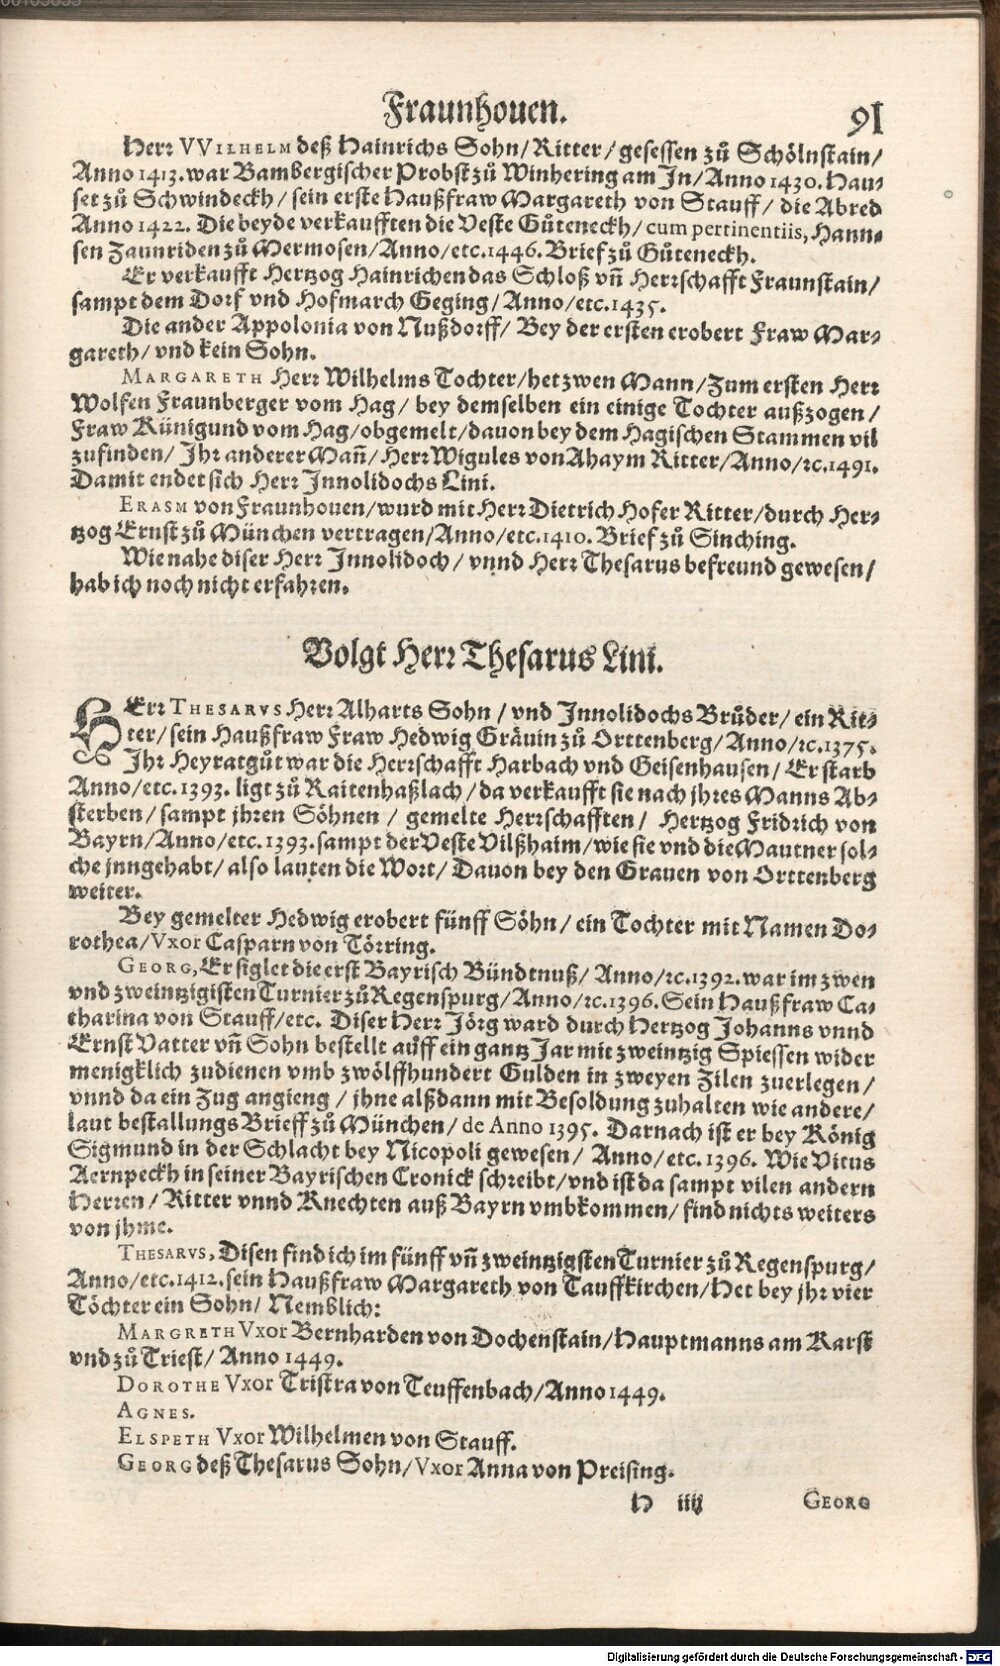 Fraunhouen. 91
Herr VVILHELM deß Hainrichs Sohn/ Ritter/ gesessen zů Schölnstain/
Anno 1413. war Bambergischer Probst zů Winhering am Jn/ Anno 1430. Hau-
set zů Schwindeckh/ sein erste Haußfraw Margareth von Stauff/ die Abred
Anno 1422. Die beyde verkaufften die Veste Gůteneckh/ cum pertinentiis, Hann-
sen Zaunriden zů Mermosen/ Anno/ etc. 1446. Brief zů Gůteneckh.
Er verkaufft Hertzog Hainrichen das Schloß vñ Herrschafft Fraunstain/
sampt dem Dorf vnd Hofmarch Geging/ Anno/ etc. 1435.
Die ander Appolonia von Nußdorff/ Bey der ersten erobert Fraw Mar-
gareth/ vnd kein Sohn.
MARGARETH Herr Wilhelms Tochter/ het zwen Mann/ Zum ersten Herr
Wolfen Fraunberger vom Hag/ bey demselben ein einige Tochter außzogen/
Fraw Künigund vom Hag/ obgemelt/ dauon bey dem Hagischen Stammen vil
zufinden/ Jhr anderer Mañ/ Herr Wigules von Ahaym Ritter/ Anno/ ꝛc. 1491.
Damit endet sich Herr Jnnolidochs Lini.
ERASM von Fraunhouen/ wurd mit Herr Dietrich Hofer Ritter/ durch Her-
tzog Ernst zů München vertragen/ Anno/ etc. 1410. Brief zů Sinching.
Wie nahe diser Herr Jnnolidoch/ vnnd Herr Thesarus befreund gewesen/
hab ich noch nicht erfahren.
Volgt Herr Thesarus Lini.
HErr THESARVS Herr Alharts Sohn/ vnd Jnnolidochs Brůder/ ein Rit-
ter/ sein Haußfraw Fraw Hedwig Gräuin zů Orttenberg/ Anno/ ꝛc. 1375.
Jhr Heyratgůt war die Herrschafft Harbach vnd Geisenhausen/ Er starb
Anno/ etc. 1393. ligt zů Raitenhaßlach/ da verkaufft sie nach jhres Manns Ab-
sterben/ sampt jhren Söhnen/ gemelte Herrschafften/ Hertzog Fridrich von
Bayrn/ Anno/ etc. 1393. sampt der Veste Vilßhaim/ wie sie vnd die Mautner sol-
che jnngehabt/ also lauten die Wort/ Dauon bey den Grauen von Orttenberg
weiter.
Bey gemelter Hedwig erobert fünff Söhn/ ein Tochter mit Namen Do-
rothea/ Vxor Casparn von Törring.
GEORG, Er siglet die erst Bayrisch Bündtnuß/ Anno/ ꝛc. 1392. war im zwen
vnd zweintzigisten Turnier zů Regenspurg/ Anno/ ꝛc. 1396. Sein Haußfraw Ca-
tharina von Stauff/ etc. Diser Herr Jörg ward durch Hertzog Johanns vnnd
Ernst Vatter vñ Sohn bestellt auff ein gantz Jar mit zweintzig Spiessen wider
menigklich zudienen vmb zwölffhundert Gulden in zweyen Zilen zuerlegen/
vnnd da ein Zug angieng/ jhne alßdann mit Besoldung zuhalten wie andere/
laut bestallungs Brieff zů München/ de Anno 1395. Darnach ist er bey König
Sigmund in der Schlacht bey Nicopoli gewesen/ Anno/ etc. 1396. Wie Vitus
Aernpeckh in seiner Bayrischen Cronick schreibt/ vnd ist da sampt vilen andern
Herren/ Ritter vnnd Knechten auß Bayrn vmbkommen/ find nichts weiters
von jhme.
THESARVS, Disen find ich im fünff vñ zweintzigsten Turnier zů Regenspurg/
Anno/ etc. 1412. sein Haußfraw Margareth von Tauffkirchen/ Het bey jhr vier
Töchter ein Sohn/ Nemblich:
MARGRETH Vxor Bernharden von Dochenstain/ Hauptmanns am Karst
vnd zů Triest/ Anno 1449.
DOROTHE Vxor Tristra von Teuffenbach/ Anno 1449.
AGNES.
ELSPETH Vxor Wilhelmen von Stauff.
GEORG deß Thesarus Sohn/ Vxor Anna von Preising.
H iiij GEORG
Digitalisierung gefördert durch die Deutsche Forschungsgemeinschaft - DFG